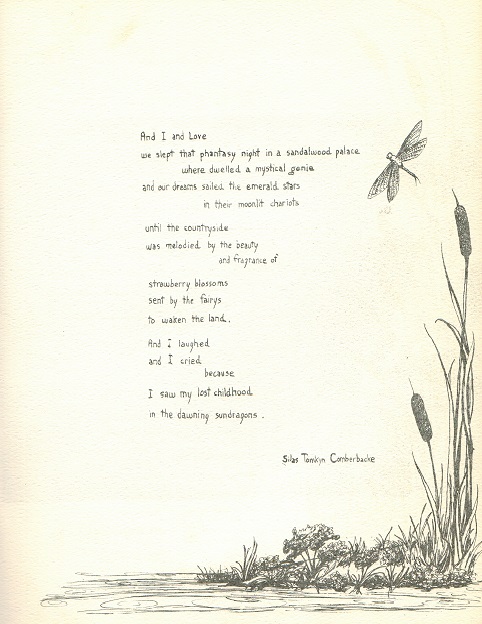 And I and Love
we slept that phantasy night in a sandalwood palace
where dwelled a mystical genie
and our dreams sailed the emerald stars
in their moonlit chariots
until the countryside
was melodied by the beauty
and fragrance of
strawberry blossoms
sent by the fairys
to waken the land.
And I laughed
and I cried
because
I saw my lost childhood
in the dawning sundragons.
Silas Tomkyn Comberbacke